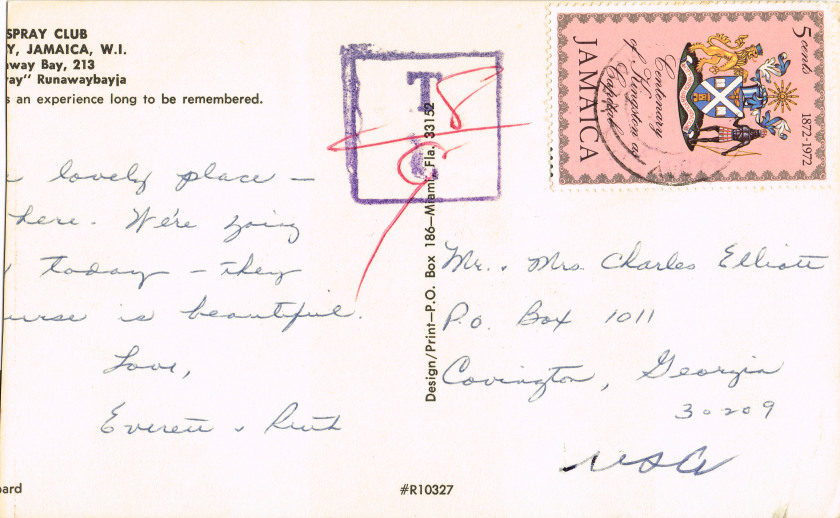 SPRAY CLUB
Y, JAMAICA, W.I.
away Bay, 213
ray" Runawaybayja
s an experience long to be remembered.
lovely place —
here. We're going
today — they
urse is beautiful.
Love,
Everett & Ruth
ard
T
Design/Print—P.O. Box 186—Miami, Fla. 33152
#R10327
5 cents
1872-1972
Centenary
of Kingston as
Capital
JAMAICA
Mr. & Mrs. Charles Elliott
P.O. Box 1011
Covington, Georgia
30209
USA